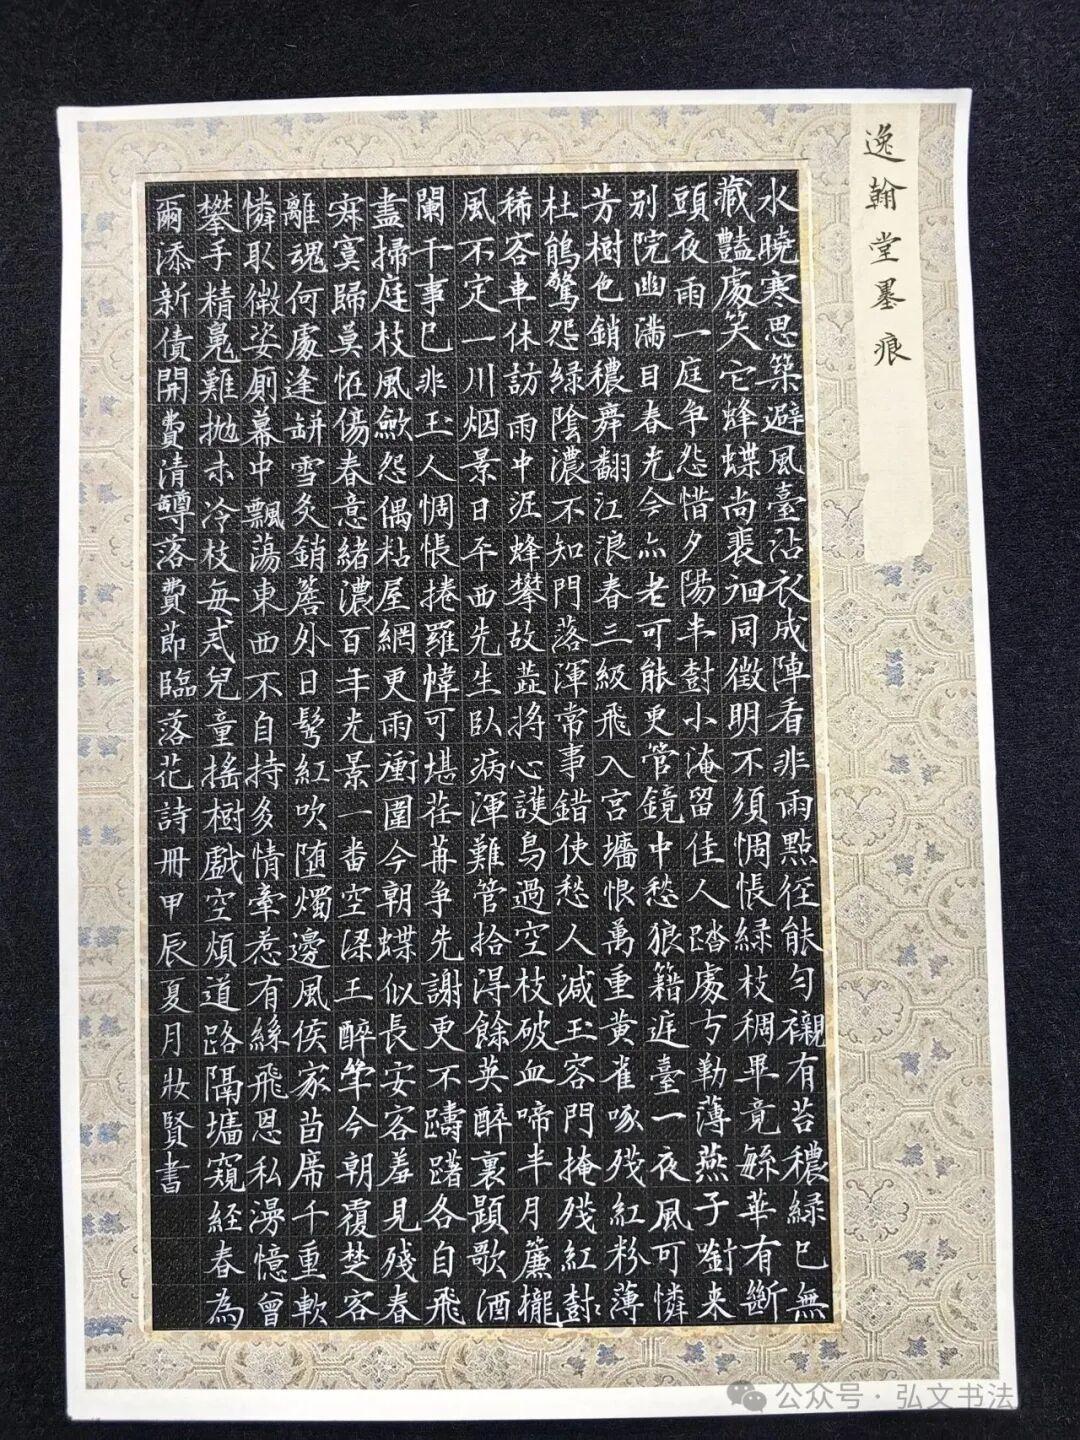 逸翰堂墨痕
水曉寒思築避風臺沾衣成陣看非雨點徑能勻襯有苔穠綠已無
藏豔處笑它蜂蝶尚裴洄同徵明不須惆悵綠枝稠畢竟繁華有斷
頭夜雨一庭爭怨惜夕陽半樹小淹留佳人踏處方勒薄燕子銜来
别院幽滿目春光今亦老可能更管鏡中愁狼籍遅臺一夜風可憐
芳樹色銷穠舞翻江浪春三級飛入宮墻恨萬重黄雀啄残紅粉薄
杜鵑驚怨緑陰濃不知門落渾常事錯使愁人減玉容門掩残紅樹
稀客車休訪雨中泥蜂攀故蕋将心護鳥過空枝破血啼半月簾櫳
風不定一川烟景日平西先生臥病渾難管拾得餘英醉裏題歌酒
闌干事已非玉人惆悵捲羅幃可堪荏苒争先謝更不躊躇各自飛
盡掃庭枝風歙怨偶粘屋網更雨衝圍今朝蝶似長安客羞見殘春
寂寞歸莫怪傷春意緒濃百年光景一番空梁王醉筆今朝覆楚客
離魂何處逢缾雪灸銷簷外日髩紅吹随燭邊風侯家茵席千重軟
憐取微姿廁幕中飄蕩東西不自持多情牽惹有絲飛恩私漫憶曾
攀手精鬼難抛未冷枝每弍兒童搖樹戲空煩道路隔墻窺經春為
爾添新債開費清罇落費節臨落花詩冊甲辰夏月妝賢書
公众号·弘文书法